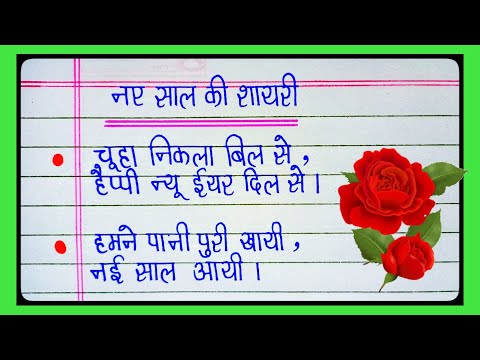 नए साल की शायरी
चूहा निकला बिल से,
हैप्पी न्यू ईयर दिल से।
हमने पानी पुरी खायी,
नई साल आयी।